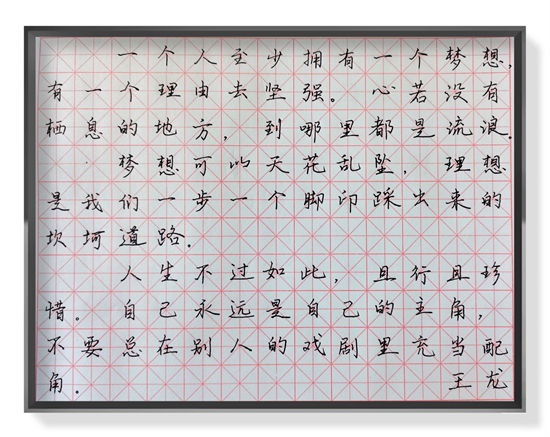 一个人至少拥有一个梦想,
有一个理由去坚强。心若没有
栖息的地方,到哪里都是流浪.
梦想可以天花乱坠,理想
是我们一步一个脚印踩出来的
坎坷道路.
人生不过如此,且行且珍
惜。自己永远是自己的主角,
不要总在别人的戏剧里充当配
角.王龙